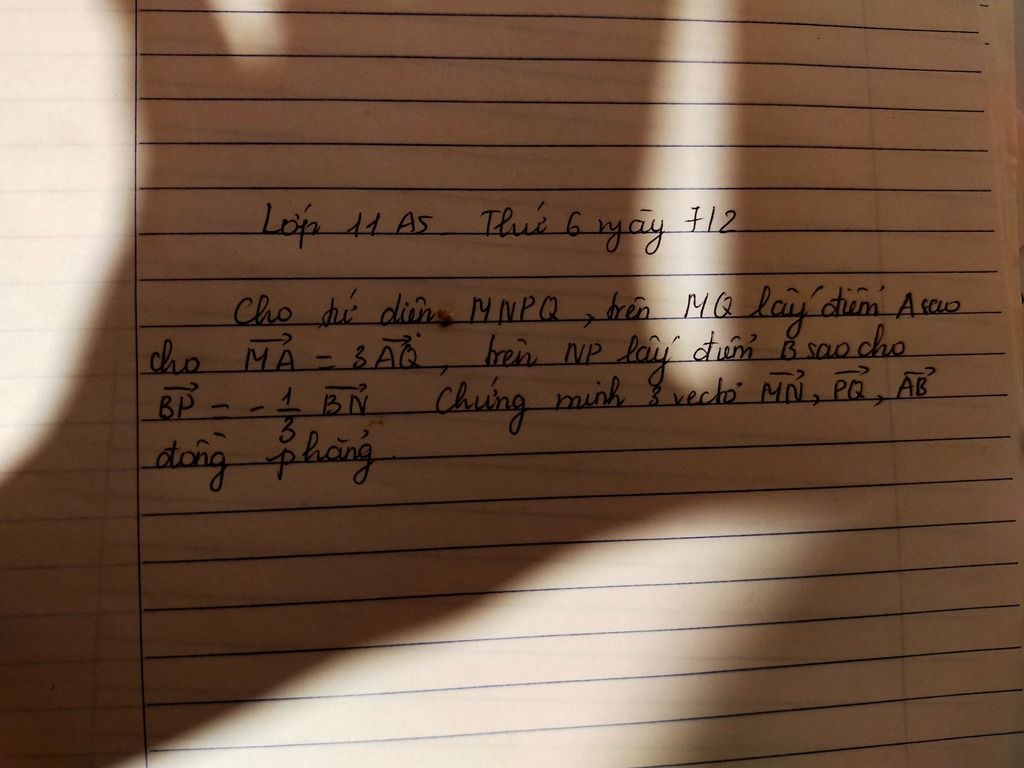 Lớp 11 A5 Thứ 6 ngày 7/2
Cho tứ diện MNPQ, trên MQ lấy điểm A sao
cho \overrightarrow{MA} = 3\overrightarrow{AQ}, trên NP lấy điểm B sao cho
\overrightarrow{BP} = -\frac{1}{3} \overrightarrow{BN} Chứng minh 3 vectơ \overrightarrow{MN}, \overrightarrow{PQ}, \overrightarrow{AB}
đồng phẳng.